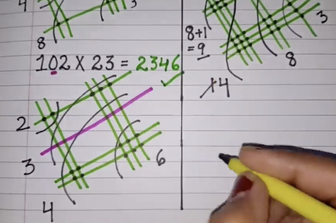 4
8
3
102 X 23 = 2346
2
3
4
6
8+1
=9
14
8
3